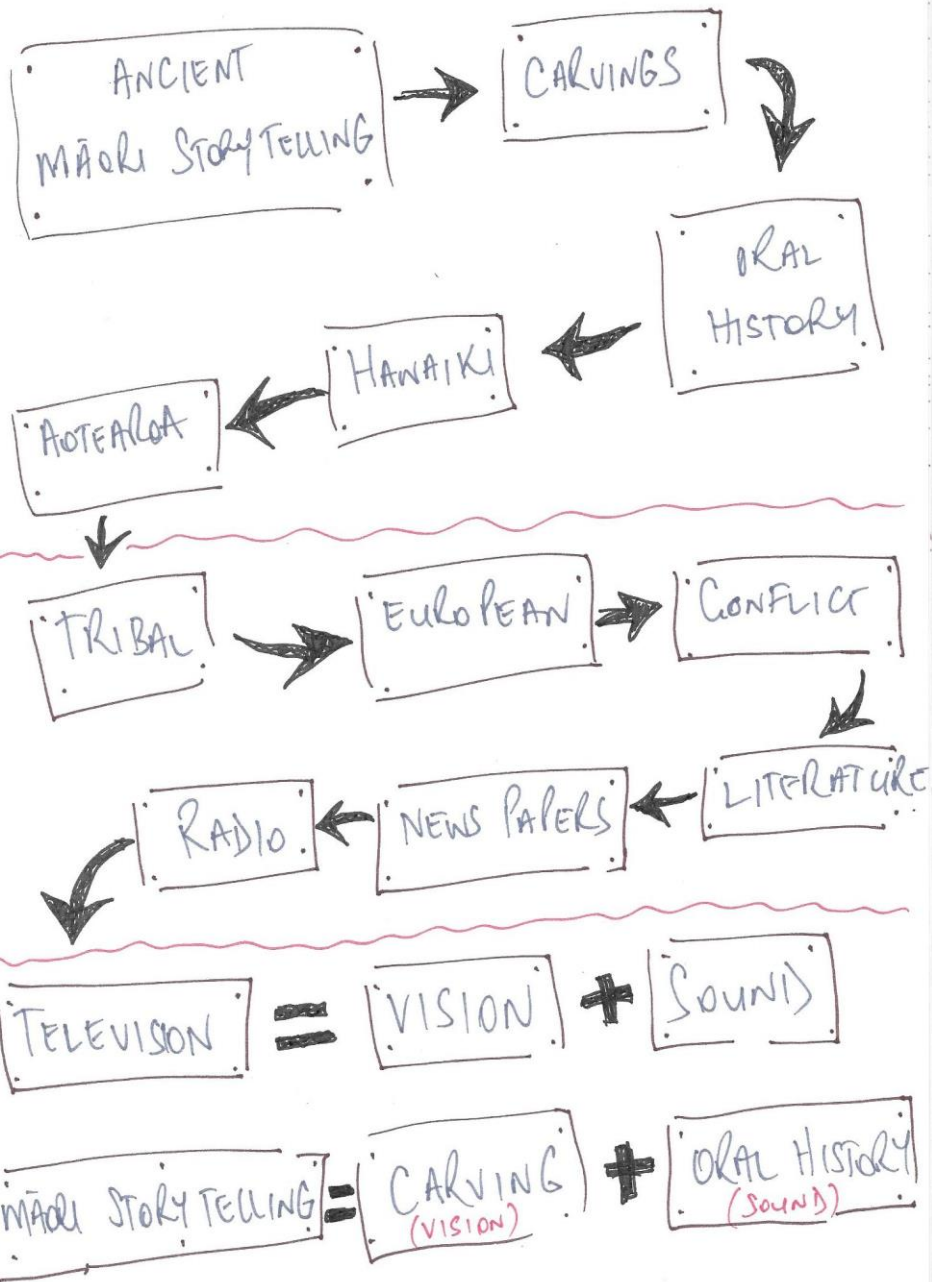 ANCIENT
MĀORI STORYTELLING
CARVINGS
ORAL
HISTORY
HAWAIKI
AOTEAROA
TRIBAL
EUROPEAN
CONFLICT
LITERATURE
NEWS PAPERS
RADIO
TELEVISION = VISION + SOUND
MĀORI STORYTELLING = CARVING + ORAL HISTORY
(VISION) (SOUND)